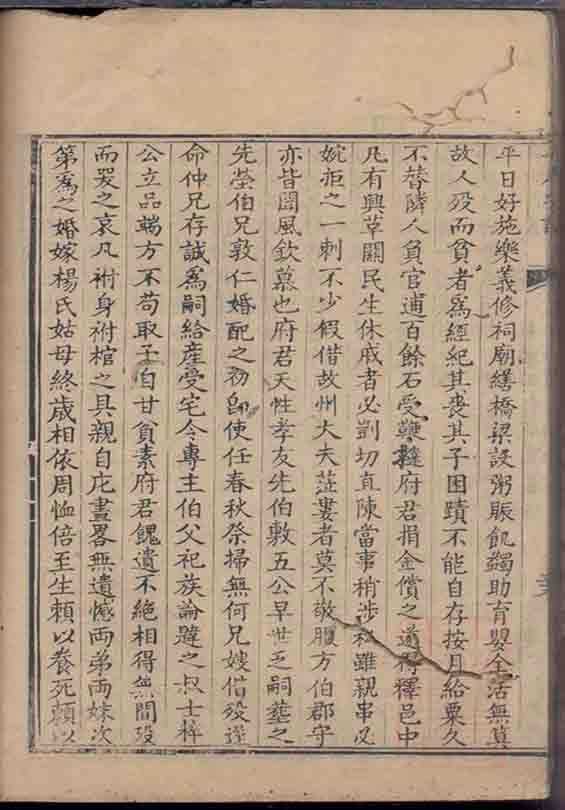 平日好施樂義修祠廟繕橋梁設粥賑飢蠲助育嬰全活無算
故人歿而貧者為經紀其喪其子困躓不能自存按月給粟久
不替隣人負官逋百餘石受鞭撻府君捐金償之遂得釋邑中
凡有興革關民生休戚者必剴切直陳當事稍涉私雖親串必
婉拒之一刺不少假借故州大夫蒞婁者莫不敬服方伯郡守
亦皆聞風欽慕也府君天性孝友先伯敷五公早世乏嗣塟之
先塋伯兄敦仁婚配之初即使任春秋祭掃無何兄嫂偕歿遂
命仲兄存誠為嗣給產受宅令專主伯父祀族論韙之叔士梓
公立品端方不苟取予自甘貧素府君餽遺不絕相得無間歿
而哭之哀凡附身附棺之具親自庀畫畧無遺憾兩弟兩妹次
第為之婚嫁楊氏姑母終歲相依周恤倍至生賴以養死賴以